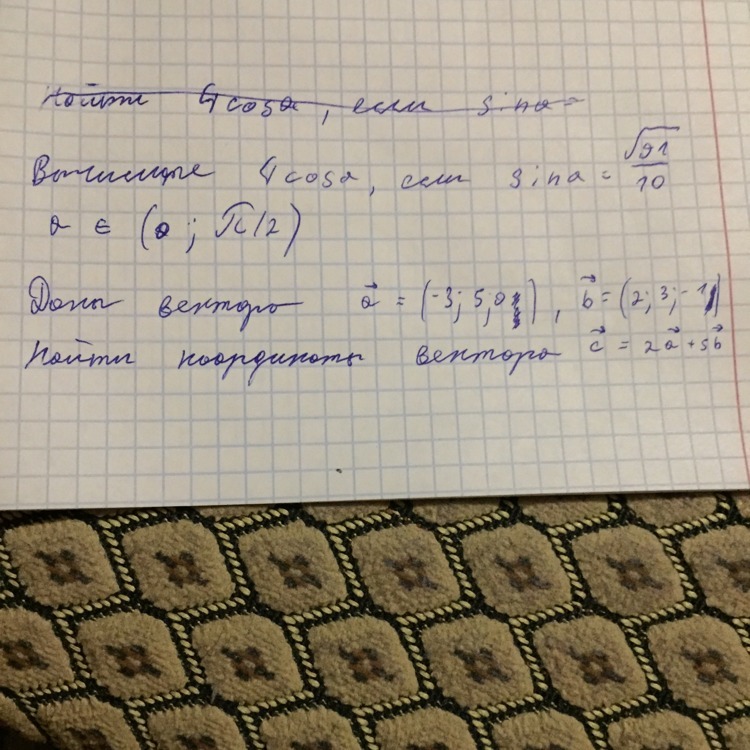 Найти 4cosa, если sina=
Вычислите 4cosa, если sina = √91/10
a ∈ (0; π/2)
Даны вектора a⃗ = (-3; 5, 0), b⃗ = (2; 3; -1)
Найти координаты вектора c⃗ = 2a⃗ + 5b⃗